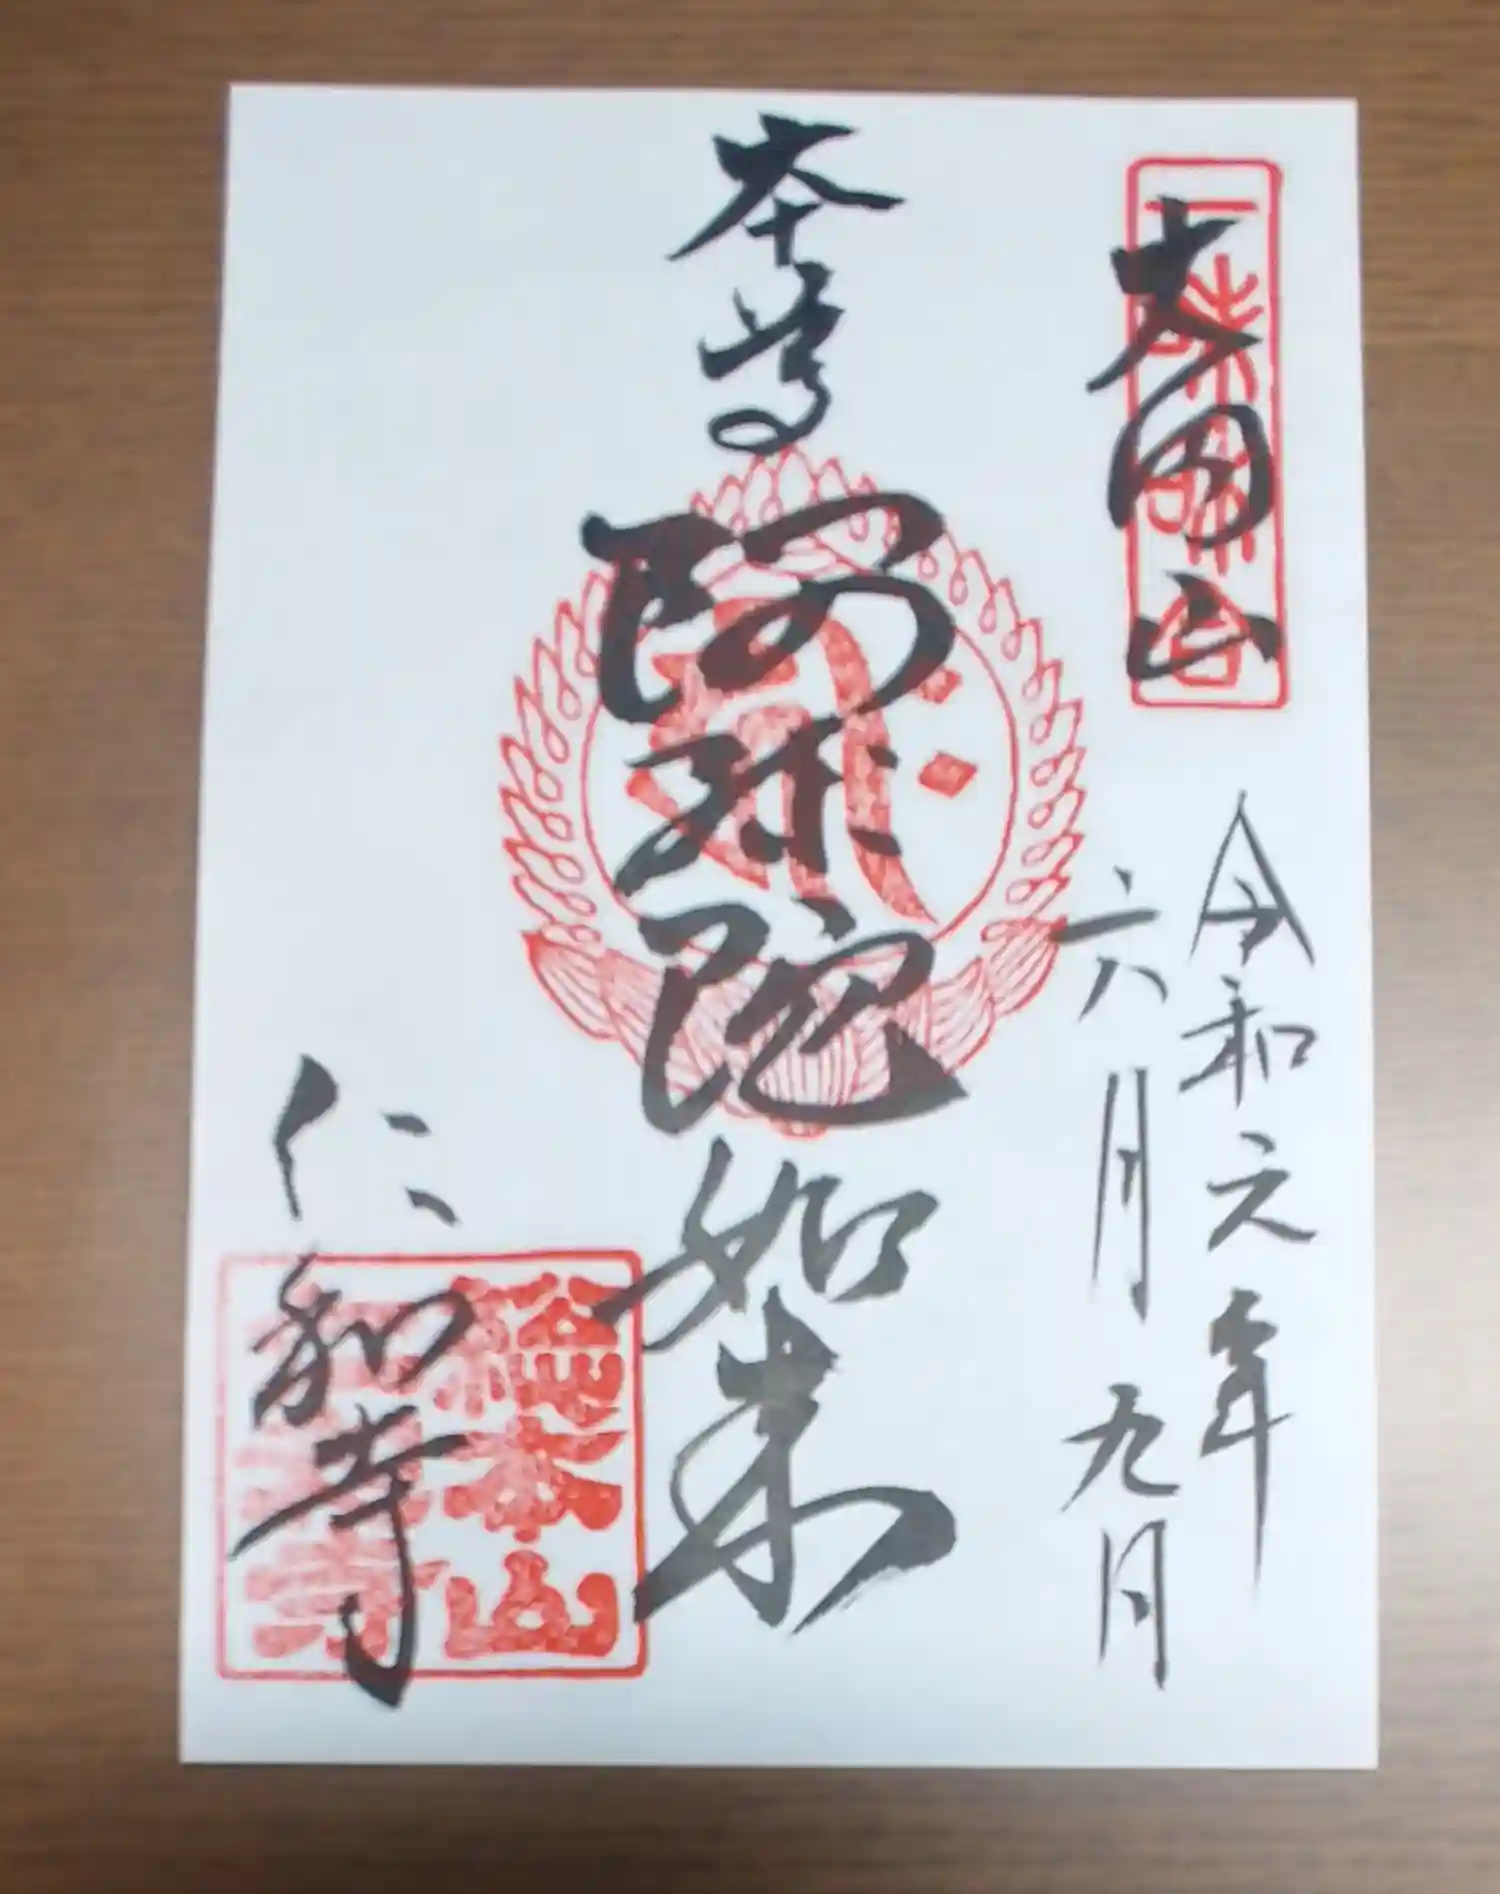 大内山
令和元年
六月九日
本尊
阿弥陀如来
仁和寺
總本山
仁和寺